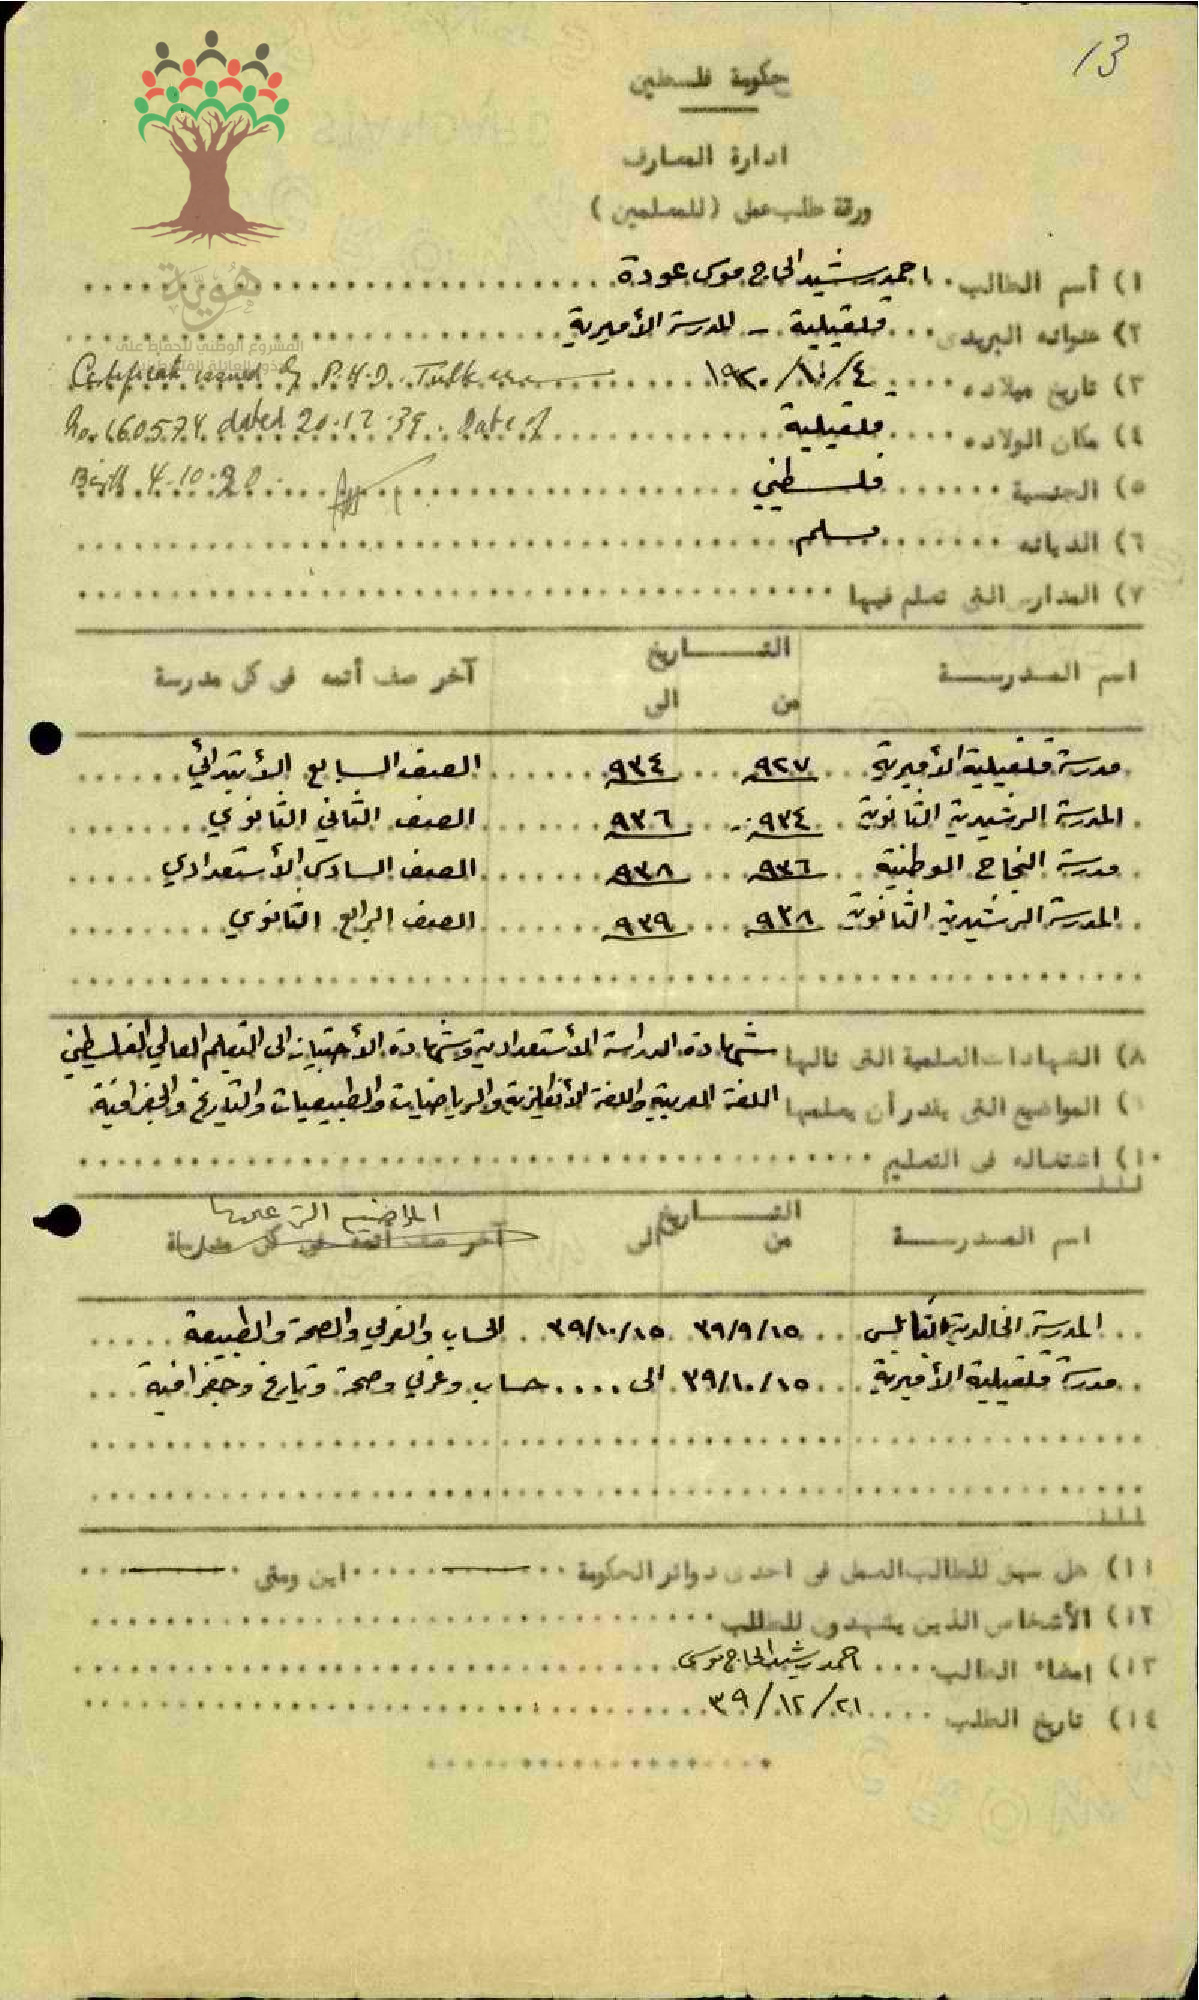 13
حكومة فلسطين
ادارة المعارف
ورقة طلب عمل (للمسلمين)
هُوِيَّة
المشروع الوطني للحفاظ على
١) أسم الطالب احمد رشيد الحاج موسى عودة
٢) عنوانه البريدى قلقيلية - المدرسة الأميرية
٣) تاريخ ميلاده ٤/١٠/١٩٢٠
Certificate issued by P.H.D. Tulk
No. 160574 dated 20.12.39. Date of
Birth 4.10.20
٤) مكان الولاده قلقيلية
٥) الجنسية فلسطيني
٦) الديانه مسلم
٧) المدارس التى تعلم فيها
اسم المدرسة التاريخ آخر صف أتمه فى كل مدرسة
من الى
مدرسة قلقيلية الأميرية ٩٢٧ ٩٣٤ الصف السابع الأبتدائي
المدرسة الرشيدية الثانوية ٩٣٤ ٩٣٦ الصف الثاني الثانوي
مدرسة النجاح الوطنية ٩٣٦ ٩٣٨ الصف السادس الأستعدادي
المدرسة الرشيدية الثانوية ٩٣٨ ٩٣٩ الصف الرابع الثانوي
٨) الشهادات العلمية التى نالها شهادة الدراسة الأستعدادية وشهادة الأجتياز الى التعليم العالي الفلسطيني
٩) المواضيع التى يقدر أن يعلمها اللغة العربية واللغة الأنكليزية والرياضيات والطبيعيات والتاريخ والجغرافية
١٠) اشتغاله فى التعليم
اسم المدرسة التاريخ المواضيع التي علمها
من الى آخر صف أتمه فى كل مدرسة
المدرسة الخالدية بنابلس ٣٩/٩/١٥ ٣٩/١٠/١٥ الحساب والعربي والصحة والطبيعة
مدرسة قلقيلية الأميرية ٣٩/١٠/١٥ الى .... حساب وعربي وصحة وتاريخ وجغرافية
١١) هل سبق للطالب العمل فى احدى دوائر الحكومة — اين ومتى —
١٢) الأشخاص الذين يشهدون للطالب
١٣) إمضاء الطالب احمد رشيد الحاج موسى
١٤) تاريخ الطلب ٢١/١٢/٣٩